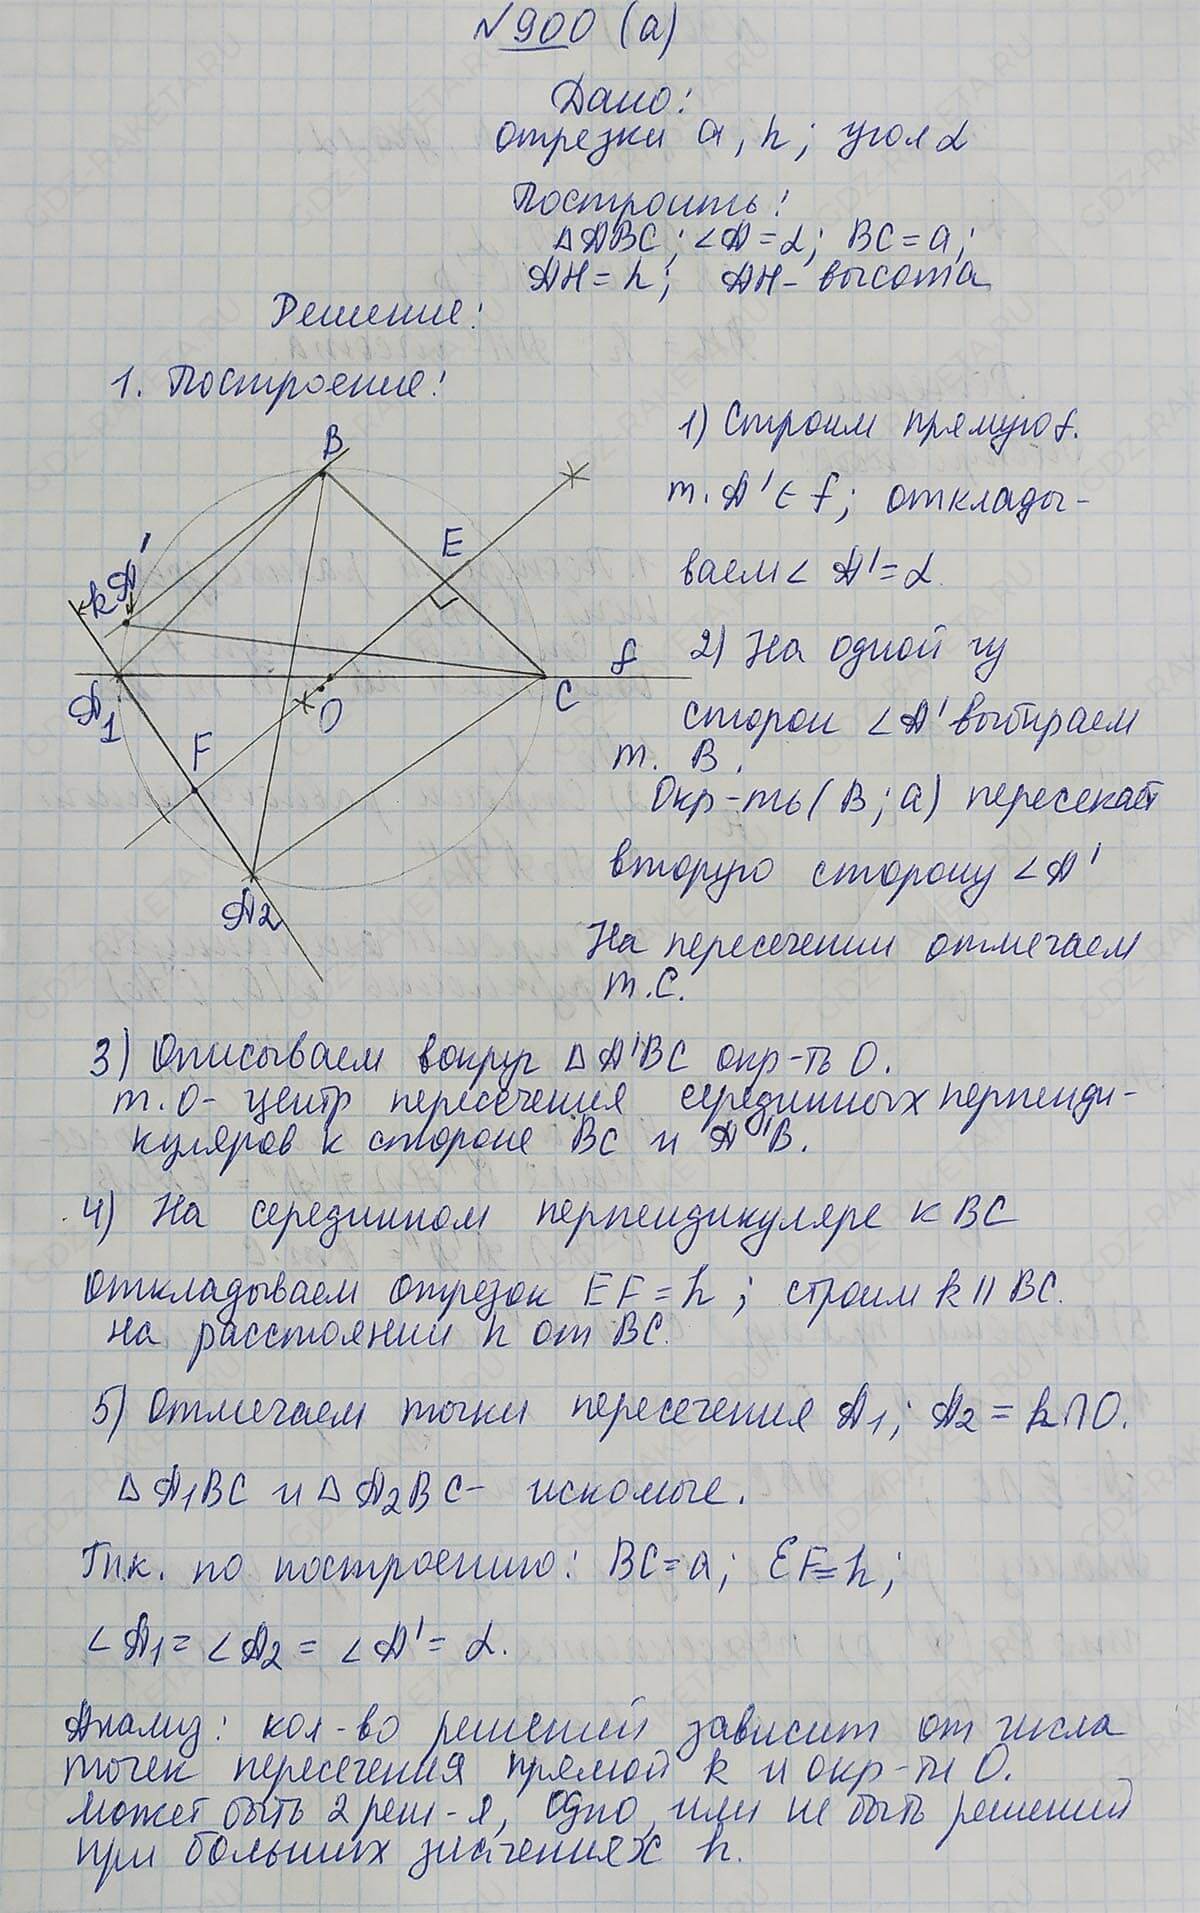 № 900 (а)
Дано:
отрезки a, h; угол α
Построить:
△ABC; ∠A = α; BC = a;
AH = h; AH - высота
Решение:
1. Построение:
B
E
k A'
f
A1
O
C
F
A2
1) Строим прямую f.
т. A' ∈ f; отклады-
ваем ∠A' = α
2) На одной из
сторон ∠A' выбираем
т. B.
Окр-ть (B; a) пересекает
вторую сторону ∠A'
На пересечении отмечаем
т. C.
3) Описываем вокруг △A'BC окр-ть O.
т. O - центр пересечения серединных перпенди-
куляров к стороне BC и A'B.
4) На серединном перпендикуляре к BC
откладываем отрезок EF = h; строим k || BC.
на расстоянии h от BC.
5) Отмечаем точки пересечения A1; A2 = k ∩ O.
△A1BC и △A2BC - искомые.
Т.к. по построению: BC = a; EF = h;
∠A1 = ∠A2 = ∠A' = α.
Анализ: кол-во решений зависит от числа
точек пересечения прямой k и окр-ти O.
Может быть 2 реш-я, одно, или не быть решений
при больших значениях h.
GDZ-RAKETA.RU